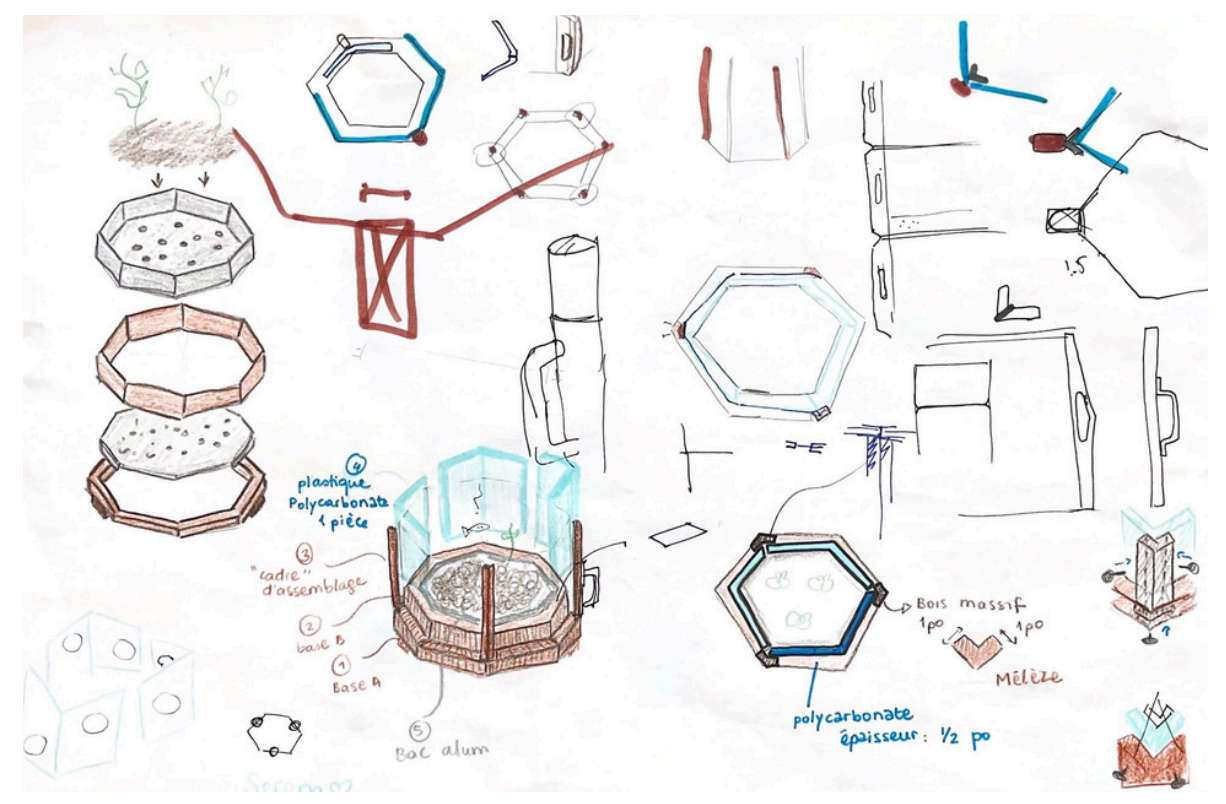 1.5
④
plastique
Polycarbonate
1 pièce
③
"cadre"
d'assemblage
②
base B
①
Base A
⑤
Bac alum
Bois massif
1po 1po
Mélèze
polycarbonate
épaisseur: 1/2 po